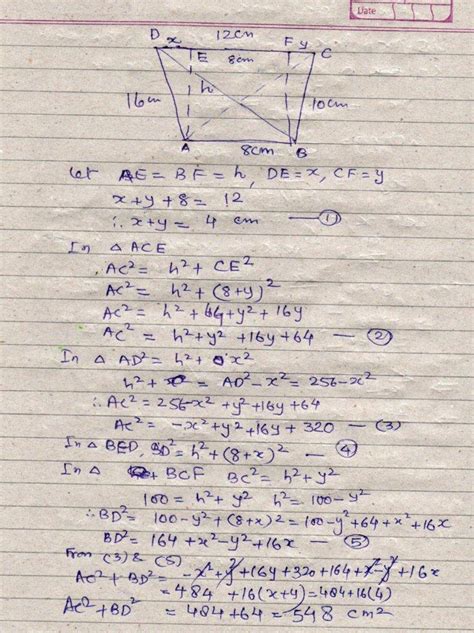 Date
12cm
D x E 8cm F y C
16cm h 10cm
A 8cm B
Let AE = BF = h, DE = x, CF = y
x + y + 8 = 12
∴ x + y = 4 cm — (1)
In △ ACE
AC² = h² + CE²
AC² = h² + (8+y)²
AC² = h² + 64 + y² + 16y
AC² = h² + y² + 16y + 64 — (2)
In △ AD² = h² + x²
h² = AD² - x² = 256 - x²
∴ AC² = 256 - x² + y² + 16y + 64
AC² = -x² + y² + 16y + 320 — (3)
In △ BED, BD² = h² + (8+x)² — (4)
In △ BCF BC² = h² + y²
100 = h² + y² h² = 100 - y²
∴ BD² = 100 - y² + (8+x)² = 100 - y² + 64 + x² + 16x
BD² = 164 + x² - y² + 16x — (5)
From (3) & (5)
AC² + BD² = -x² + y² + 16y + 320 + 164 + x² - y² + 16x
= 484 + 16(x+y) = 484 + 16(4)
AC² + BD² = 484 + 64 = 548 cm²